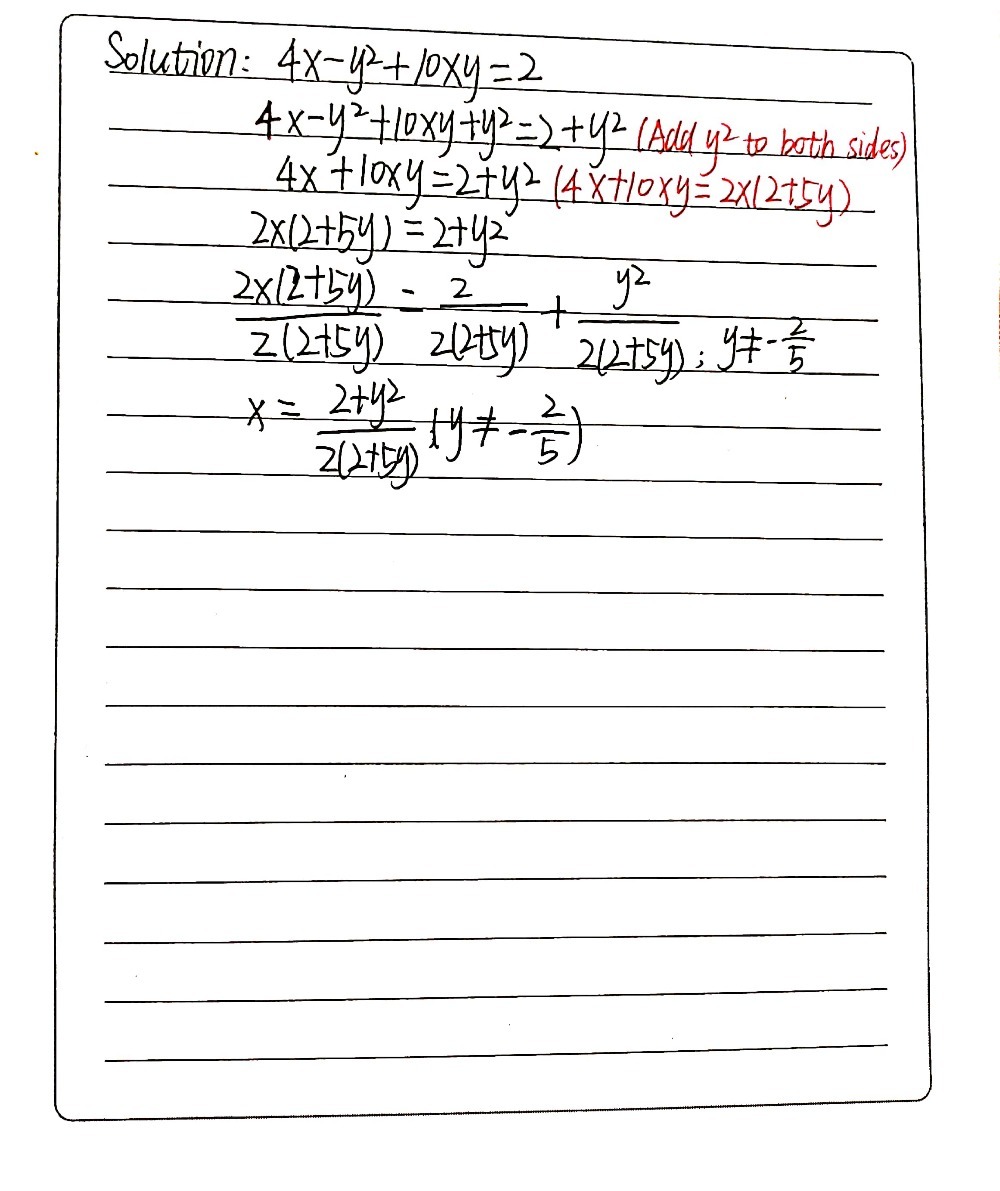 Solution: 4x-y²+10xy=2
4x-y²+10xy+y²=2+y² (Add y² to both sides)
4x+10xy=2+y² (4x+10xy=2x(2+5y)
2x(2+5y)=2+y²
2x(2+5y)/2(2+5y) = 2/2(2+5y) + y²/2(2+5y); y≠-2/5
x = 2+y²/2(2+5y) (y≠-2/5)